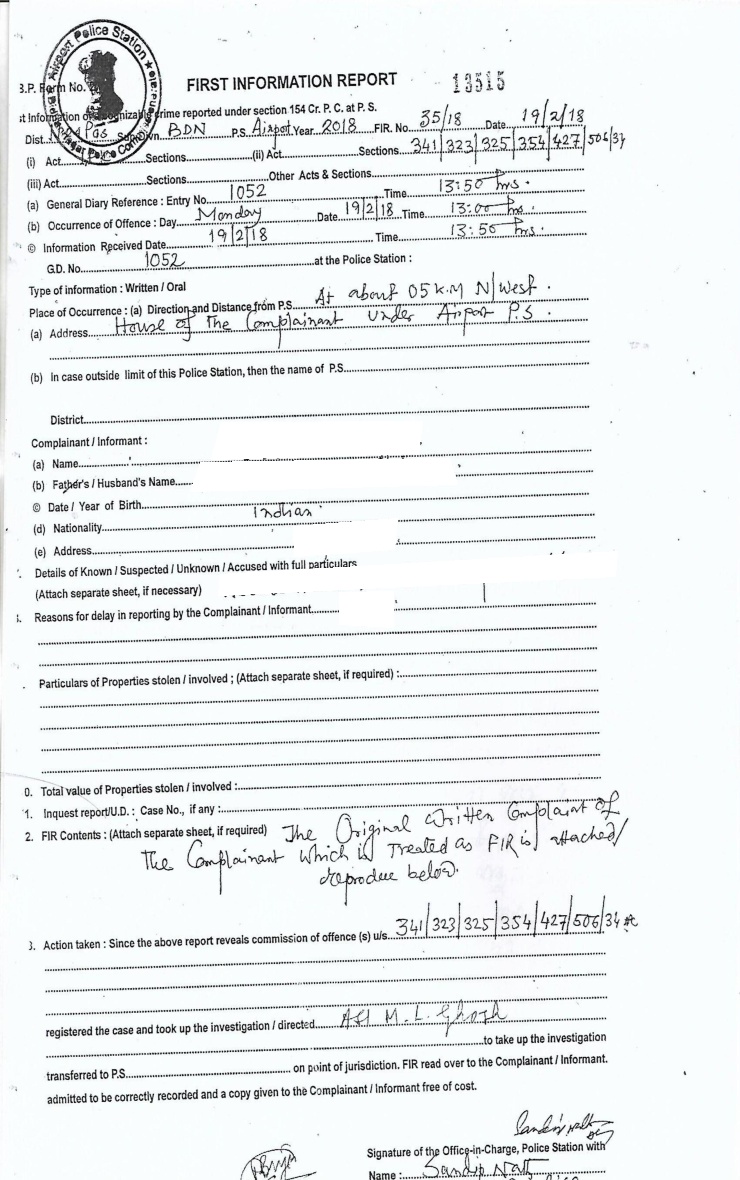 Airport Police Station
FIRST INFORMATION REPORT
13515
B.P. Form No.
st Information of cognizable crime reported under section 154 Cr. P. C. at P. S.
Dist. N 24 Pgs Subdivn. BDN P.S. Airport Year 2018 FIR. No. 35/18 Date 19/2/18
(i) Act Sections (ii) Act Sections 341/323/325/354/427/506/34
(iii) Act Sections Other Acts & Sections
(a) General Diary Reference : Entry No. 1052 Time 13:50 hrs.
(b) Occurrence of Offence : Day Monday Date 19/2/18 Time 13:00 hrs.
© Information Received Date 19/2/18 Time 13:50 hrs.
G.D. No. 1052 at the Police Station :
Type of information : Written / Oral
Place of Occurrence : (a) Direction and Distance from P.S. At about 05 K.M N/West.
(a) Address House of The Complainant under Airport P.S.
(b) In case outside limit of this Police Station, then the name of P.S.
District
Complainant / Informant :
(a) Name
(b) Father's / Husband's Name
© Date / Year of Birth
(d) Nationality Indian
(e) Address
Details of Known / Suspected / Unknown / Accused with full particulars
(Attach separate sheet, if necessary)
Reasons for delay in reporting by the Complainant / Informant
Particulars of Properties stolen / involved ; (Attach separate sheet, if required) :
0. Total value of Properties stolen / involved :
1. Inquest report/U.D. : Case No., if any :
2. FIR Contents : (Attach separate sheet, if required) The Original Written Complaint of
the Complainant which is Treated as FIR is attached/
reproduce below.
3. Action taken : Since the above report reveals commission of offence (s) u/s. 341/323/325/354/427/506/34
registered the case and took up the investigation / directed ASI M. L. Ghosh
to take up the investigation
transferred to P.S. on point of jurisdiction. FIR read over to the Complainant / Informant.
admitted to be correctly recorded and a copy given to the Complainant / Informant free of cost.
Signature of the Office-in-Charge, Police Station with
Name : Sandip Natt